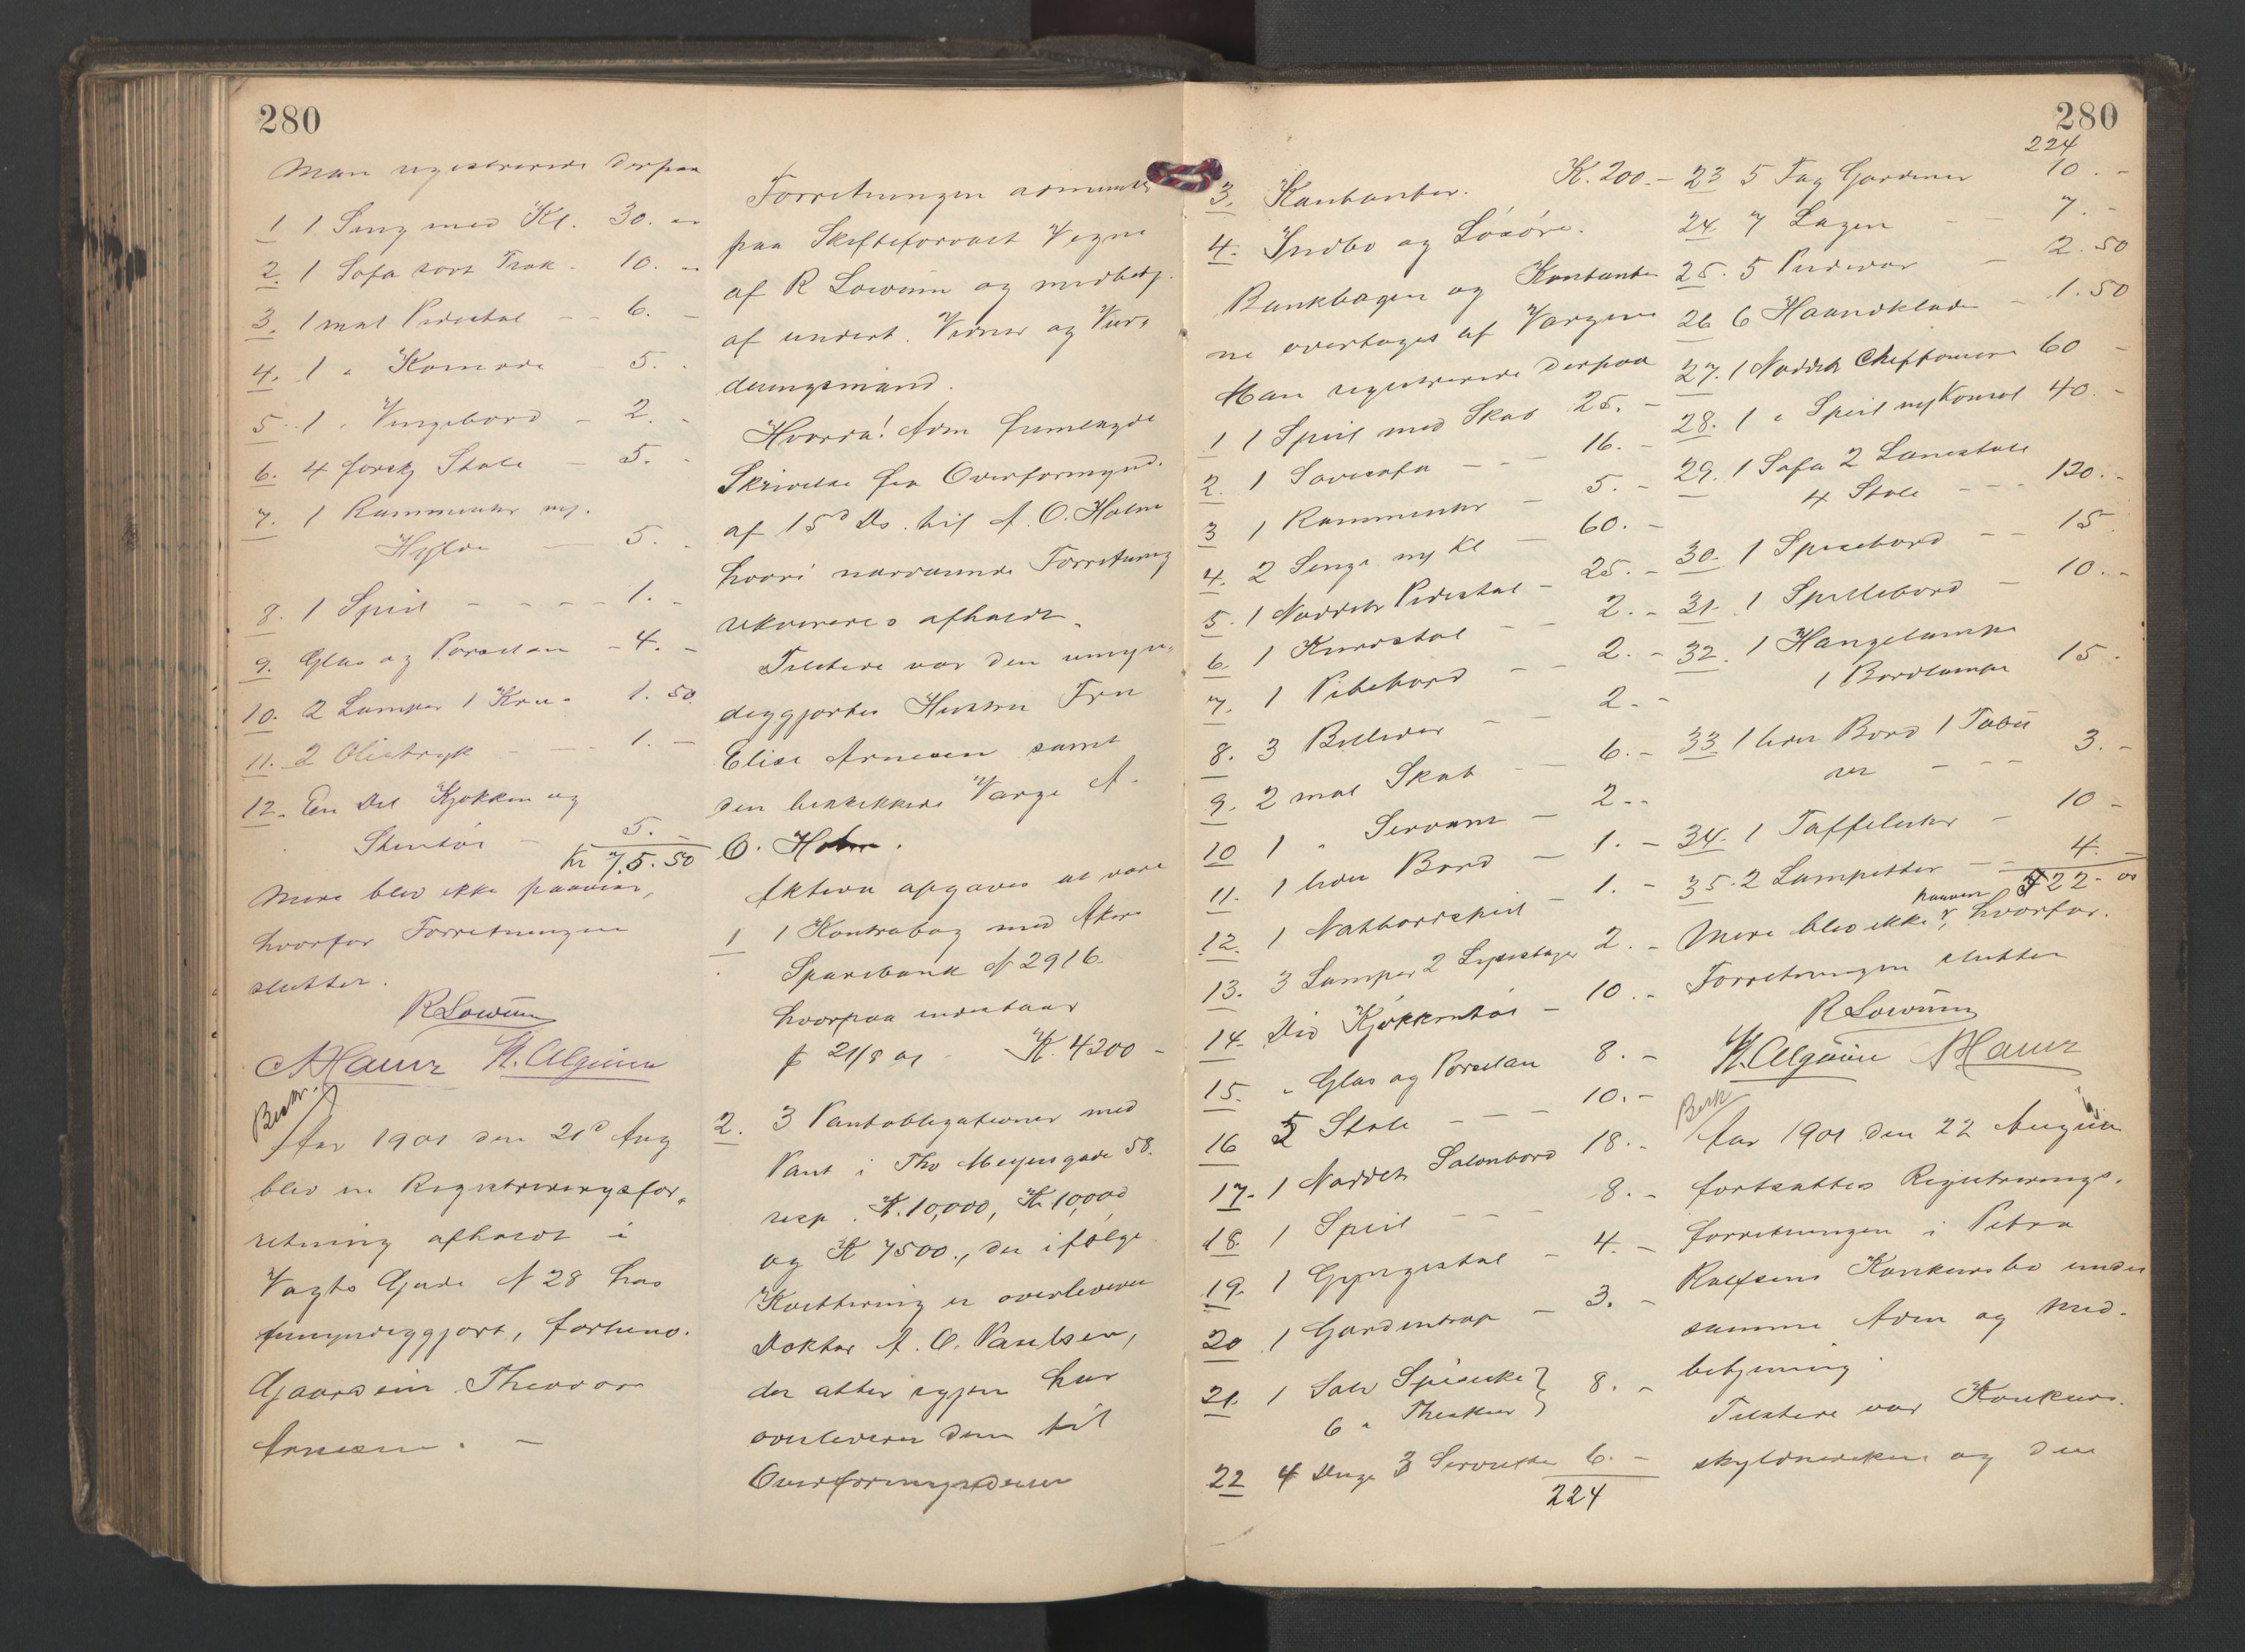 280
Man registrerede derpaa
1 1 Seng med Kl. 30. -
2. 1 Sofa sort Træk - 10. -
3. 1 mal Pidestal - - 6. -
4. 1 " Komode - 5. -
5. 1 " Vingebord - 2. -
6. 4 forskj Stole - 5. -
7. 1 Rammeuhr m/
Hylde - 5. -
8. 1 Speil - - - - 1. -
9. Glas og Porselæn - 4. -
10. 2 Lamper 1 Kru- 1. 50
11. 2 Olietryk - - - 1. -
12. En Del Kjøkken og
Stentøi - 5. -
Kr 75.50
Mere blev ikke paavist,
hvorfor Forretningen
slutter.
R Sowum
A Hauer H. Algien
Beskr.
Aar 1901 den 21d Aug
blev en Registreringsfor-
retning afholdt i
Vogts Gade N 28 hos
umyndiggjort, forhenv.
Gaardeier Theodor
Arnesen. -
Forretningen
paa Skifteforvalt Vegne
af R Sowum og medbetj.
af undert. Vidner og Vur-
deringsmænd.
Hvorda! Adm fremlagde
Skrivelse fra Overformynd.
af 15d Ds. til A. O. Holm
hvori nærværende Forretning
rekvireres afholdt.
Tilstede var den umyn-
diggjortes Hustru Fru
Elise Arnesen samt
den beskikkede Værge A.
O. Holm.
Aktiva opgaves at være
1 1 Kontrabog med Akers
Sparebank N 2916
hvorpaa indestaar
p 21/8 01 - K. 4200 -
2. 3 Pantobligationer med
Pant i Thv Meyersgade 58.
resp. K. 10,000, K. 10,000
og K 7500., der ifølge
Kvittering er overleveret
Doktor A. O. Paulsen,
der atter igjen har
overleveret dem til
Overformynderen
280
3. Kontanter. K. 200.-
4. Indbo og Løsøre.
Bankbogen og Kontante
ne overtages af Værgen
Man registrerede derpaa
1 1 Speil med Skab 25. -
2. 1 Sovesofa - - - 16. -
3 1 Rammeuhr - 5. -
4. 2 Senge m/ Kl - 60. -
5. 1 Nøddetr Pidestal - 25. -
6. 1 Kurvstol - - 2. -
7. 1 Pibebord - - 2. -
8. 3 Billeder - - 2. -
9. 2 mal Skab - - 6. -
10 1 " Servant - 2. -
11. 1 liden Bord - 1. -
12. 1 Natbordspeil - 1. -
13. 3 Lamper 2 Lysestager 2. -
14. Div Kjøkkentøi - 10. -
15. " Glas og Porselæn 8. -
16 5 Stole - - - 10. -
17. 1 Nøddetr Salonbord 18. -
18. 1 Speil - - - 8. -
19. 1 Gyngestol - 4. -
20 1 Gardintrap - 3. -
21. 1 Sølv Spiseske }
6 " Theskeer } 8. -
22 4 Duge 3 Servietter 6. -
224
224
23 5 Fag Gardiner 10. -
24. 7 Lagen - - 7. -
25. 5 Pudevar - 2. 50
26 6 Haandklæder - 1. 50
27. 1 Nøddetr Cheffoniere 60 -
28. 1 " Speil m/ Konsol 40. -
29. 1 Sofa 2 Lænestole
4 Stole - - - 120. -
30. 1 Spisebord - - 15
31. 1 Spillebord - 10. -
32. 1 Hængelampe
1 Bordlampe 15 -
33 1 liden Bord 1 Tabu
ret - - - 3. -
34. 1 Taffeluhr - 10 -
35. 2 Lampetter - - 4. -
522. 00
Mere blev ikke paavist, hvorfor.
Forretningen slutter
R Sowum
H. Algien A Hauer
Besk
Aar 1901 den 22 August
fortsattes Registrerings-
forretningen i Petra
Rolfsens Konkursbo under
samme Adm og med-
betjening
Tilstede var Konkurs-
skyldnersken og den